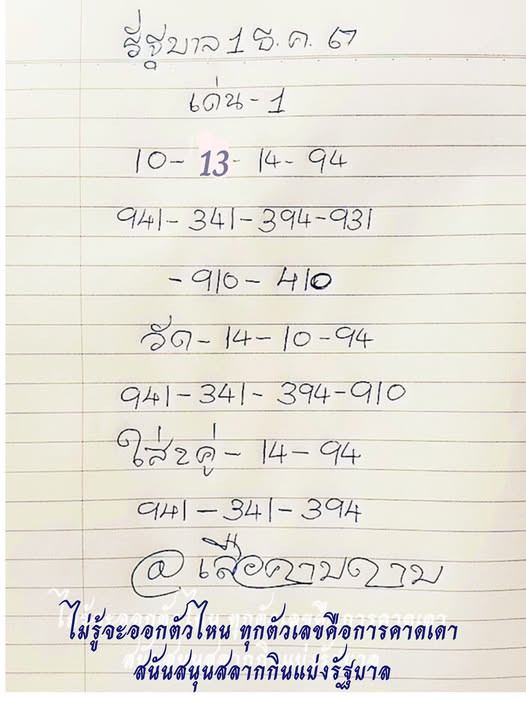 รัฐบาล 1 ธ.ค. 67
เด่น - 1
10 - 13 - 14 - 94
941 - 341 - 394 - 931
- 910 - 410
รัด - 14 - 10 - 94
941 - 341 - 394 - 910
ใส่ 2 คู่ - 14 - 94
941 - 341 - 394
@ เสือคาบดาบ
ไม่รู้จะออกตัวไหน ทุกตัวเลขคือการคาดเดา
สนันสนุนสลากกินแบ่งรัฐบาล